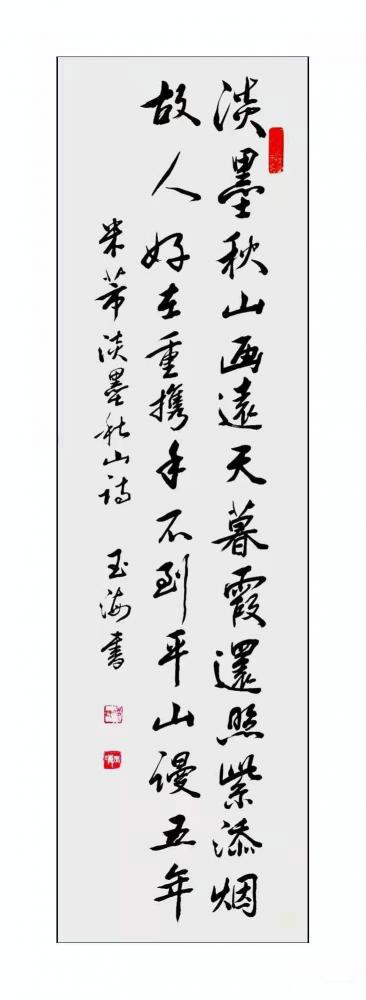 淡墨秋山画遠天暮霞還照紫添烟
故人好在重携手不到平山謾五年
米芾淡墨秋山詩 玉海書